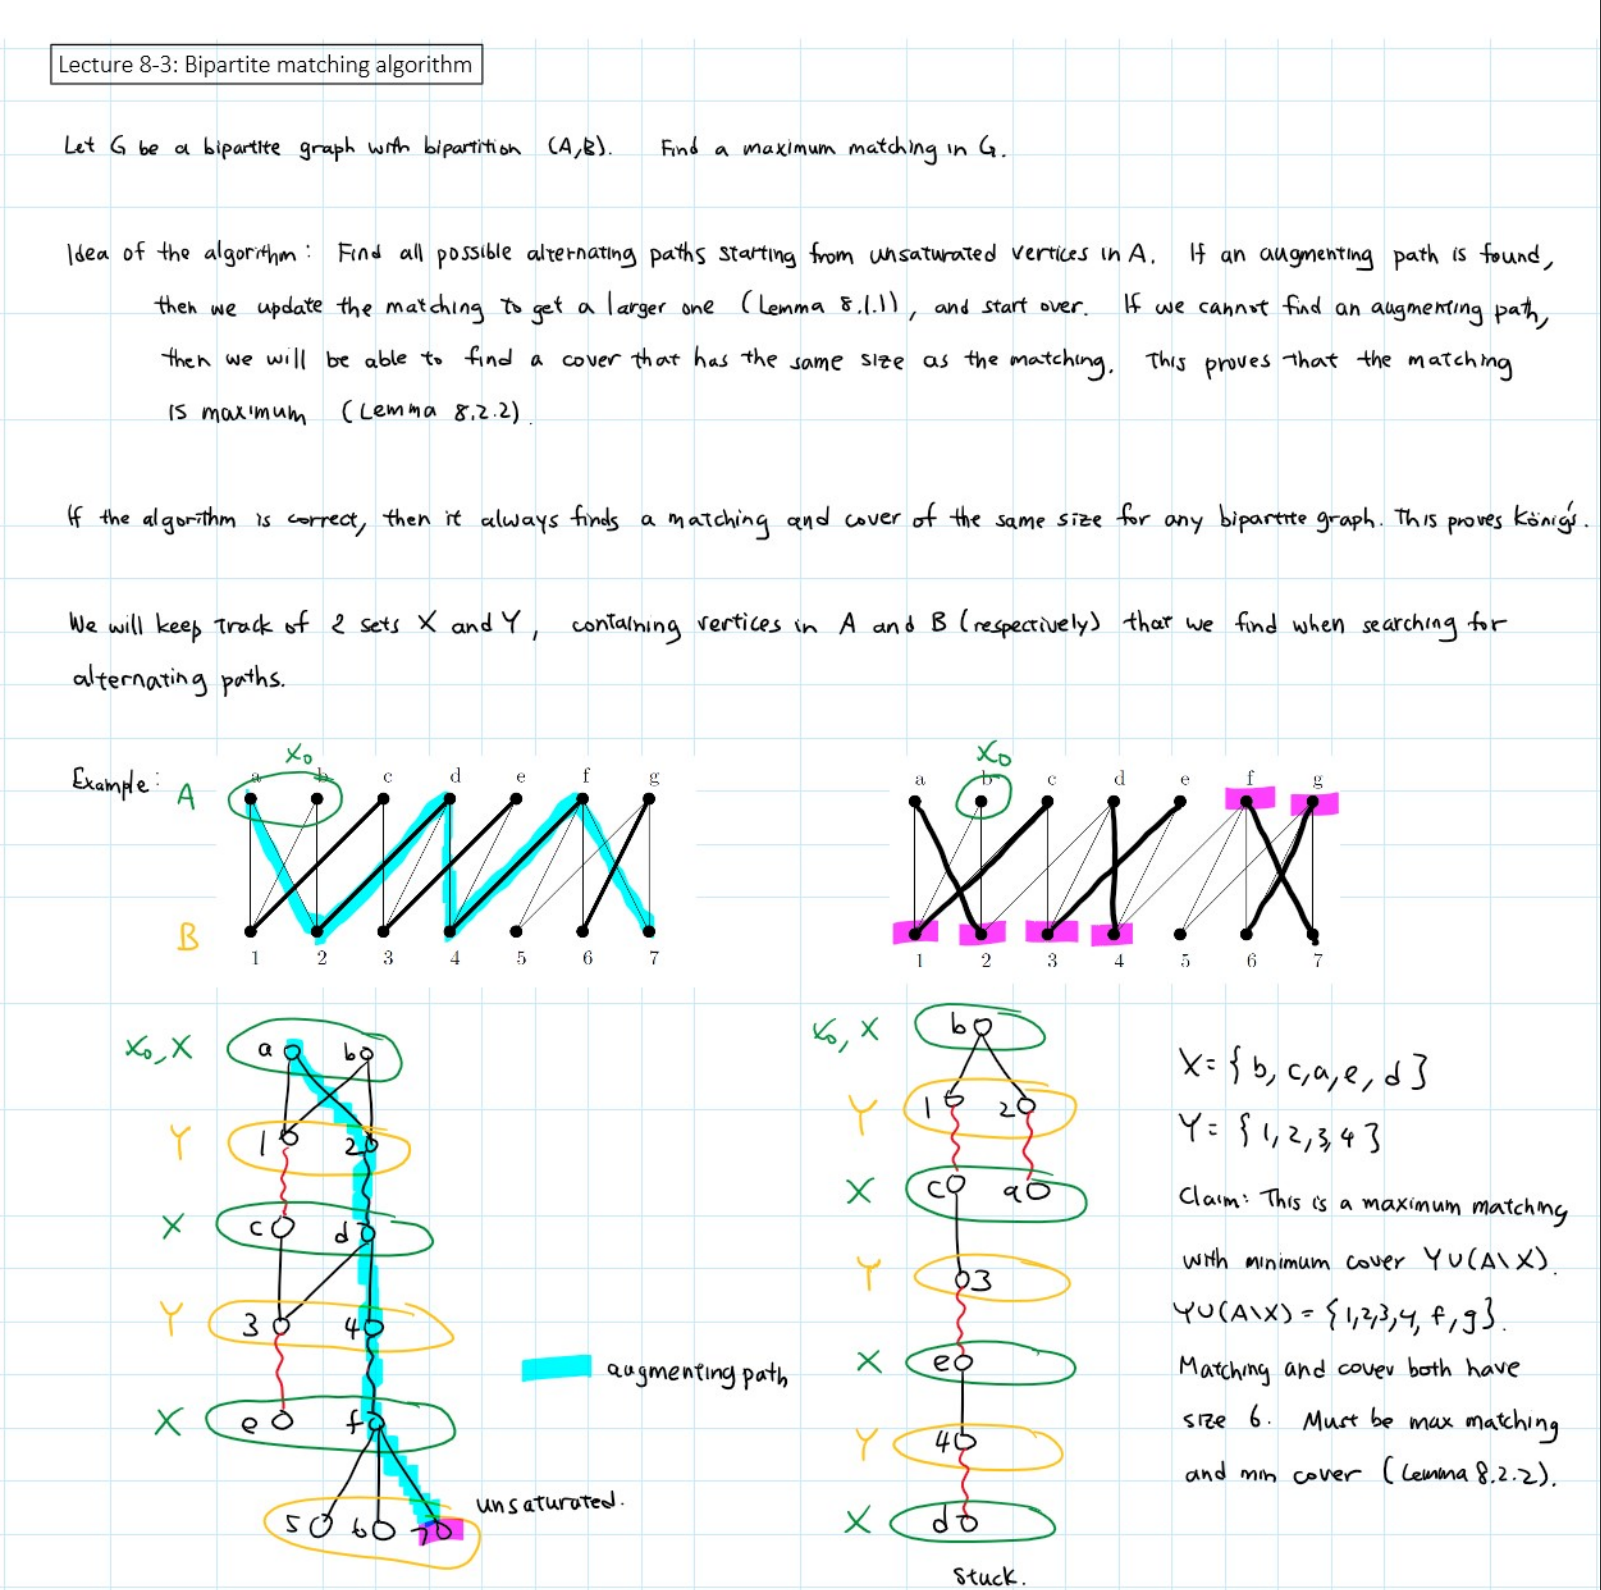 Lecture 8-3: Bipartite matching algorithm
Let G be a bipartite graph with bipartition (A,B). Find a maximum matching in G.
Idea of the algorithm: Find all possible alternating paths starting from unsaturated vertices in A. If an augmenting path is found,
then we update the matching to get a larger one (Lemma 8.1.1), and start over. If we cannot find an augmenting path,
then we will be able to find a cover that has the same size as the matching. This proves that the matching
is maximum (Lemma 8.2.2).
If the algorithm is correct, then it always finds a matching and cover of the same size for any bipartite graph. This proves König's.
We will keep track of 2 sets X and Y, containing vertices in A and B (respectively) that we find when searching for
alternating paths.
Example:
X₀
A
a b c d e f g
B
1 2 3 4 5 6 7
X₀, X
a b
Y
1 2
X
c d
Y
3 4
X
e f
5 6 7
unsaturated.
augmenting path
X₀
a b c d e f g
1 2 3 4 5 6 7
X₀, X
b
Y
1 2
X
c a
Y
3
X
e
Y
4
X
d
Stuck.
X= { b, c, a, e, d }
Y= { 1, 2, 3, 4 }
Claim: This is a maximum matching
with minimum cover Y∪(A\X).
Y∪(A\X) = {1,2,3,4, f, g}.
Matching and cover both have
size 6. Must be max matching
and min cover (Lemma 8.2.2).